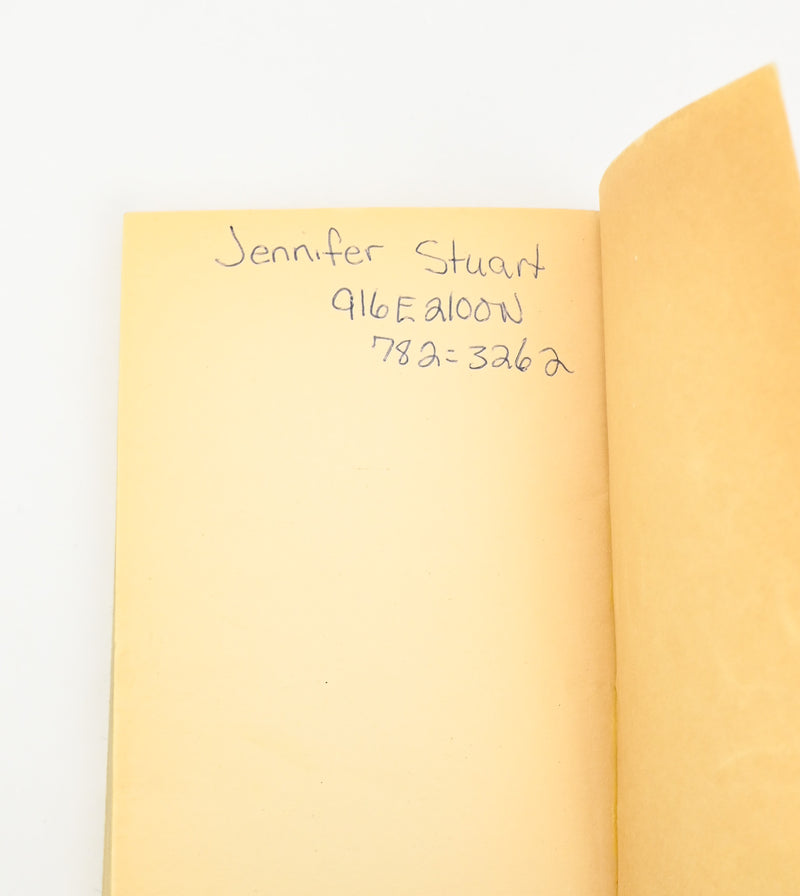 Jennifer Stuart
916 E 2100 N
782=3262